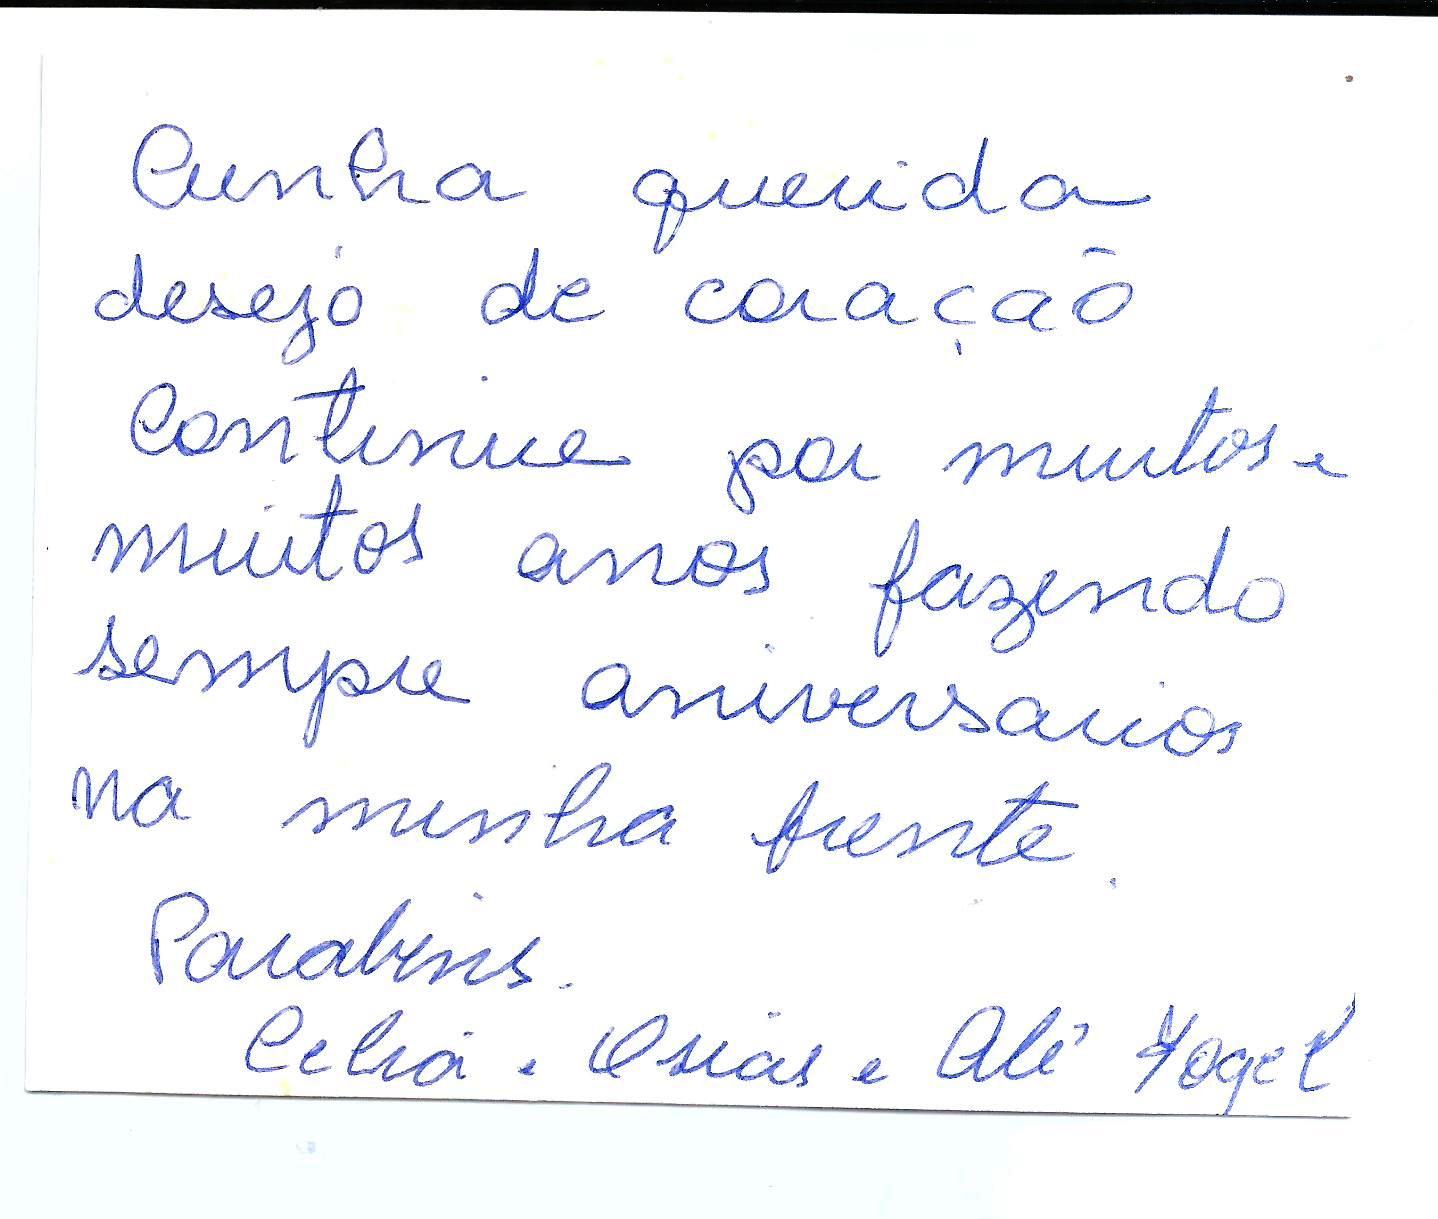 Cunha querida
desejo de coração
Continue por muitos e
muitos anos fazendo
sempre aniversarios
na minha frente.
Parabens.
Celia e Osias e Alê Vogel